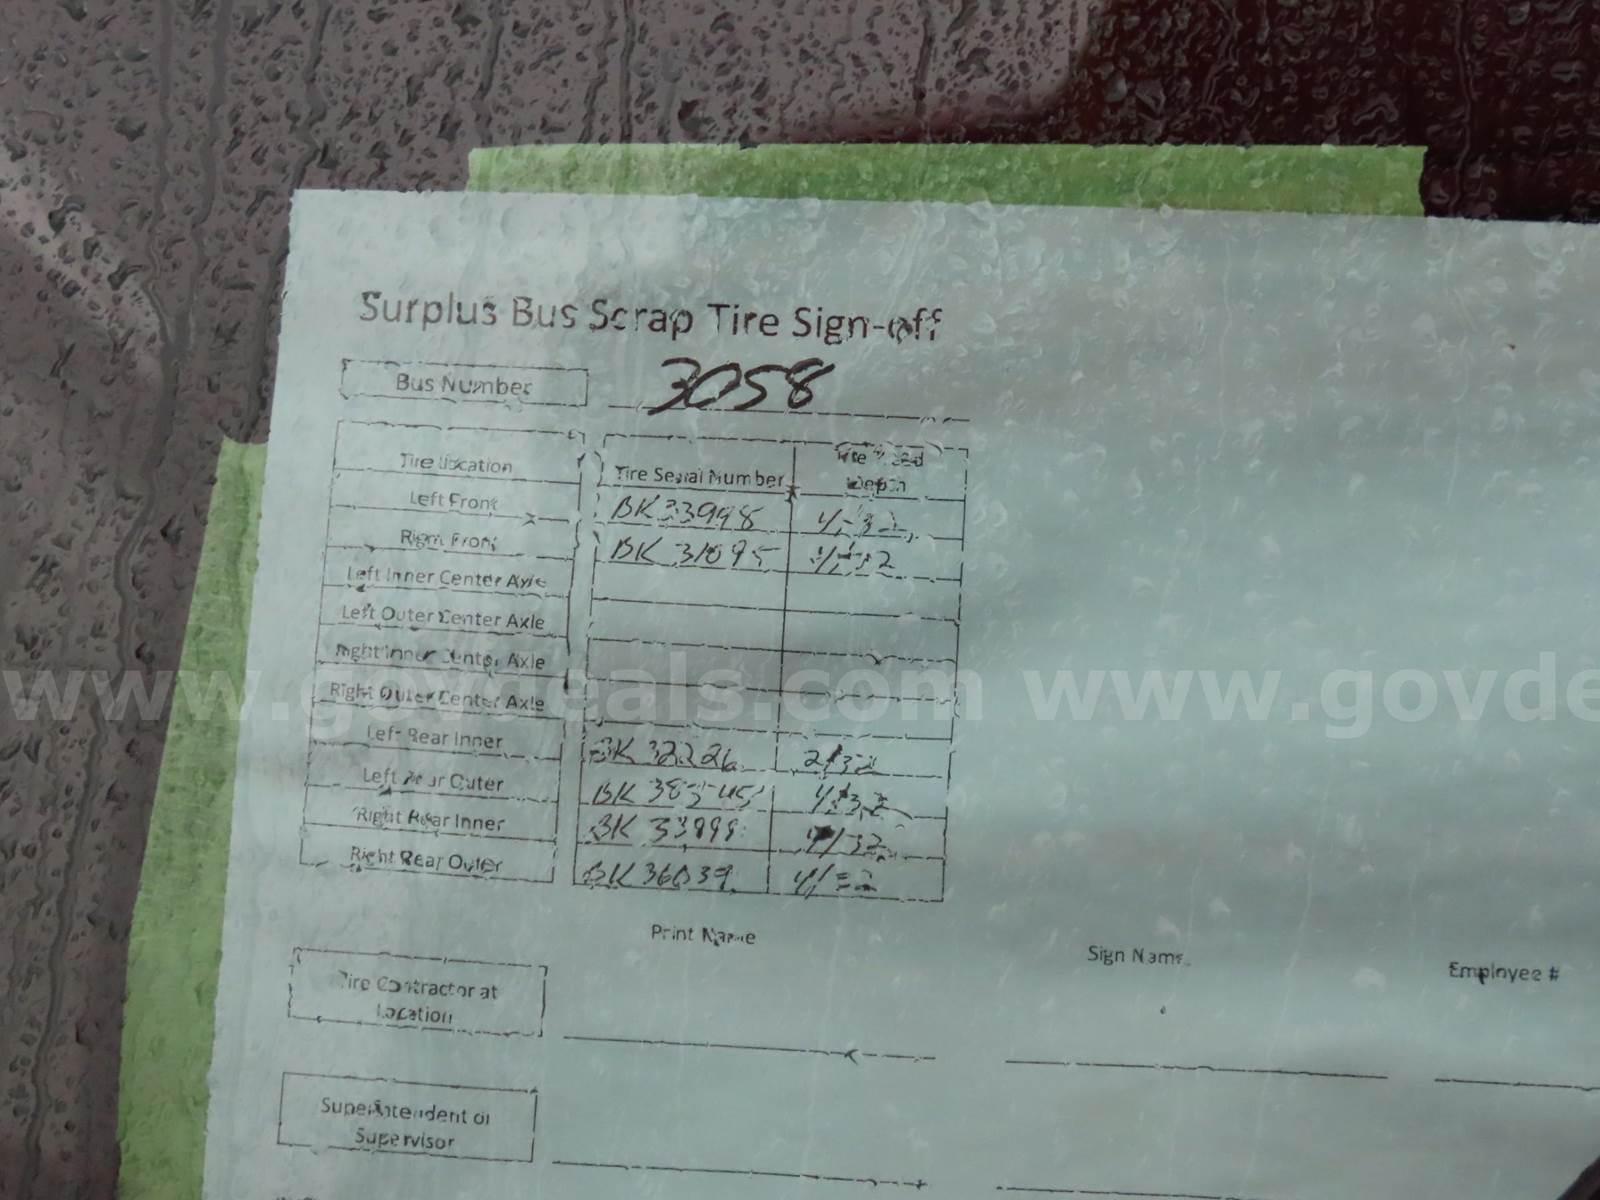 Surplus Bus Scrap Tire Sign-off
Bus Number 3058
Tire Location Tire Serial Number Tire Tread Depth
Left Front BK 33998 4/32
Right Front BK 31095 4/32
Left Inner Center Axle
Left Outer Center Axle
Right Inner Center Axle
Right Outer Center Axle
www.govdeals.com www.govde
Left Rear Inner BK 32226 2/32
Left Rear Outer BK 4/32
Right Rear Inner BK /32
Right Rear Outer BK 36039 4/32
Print Name Sign Name Employee #
Tire Contractor at
Location
Superintendent or
Supervisor